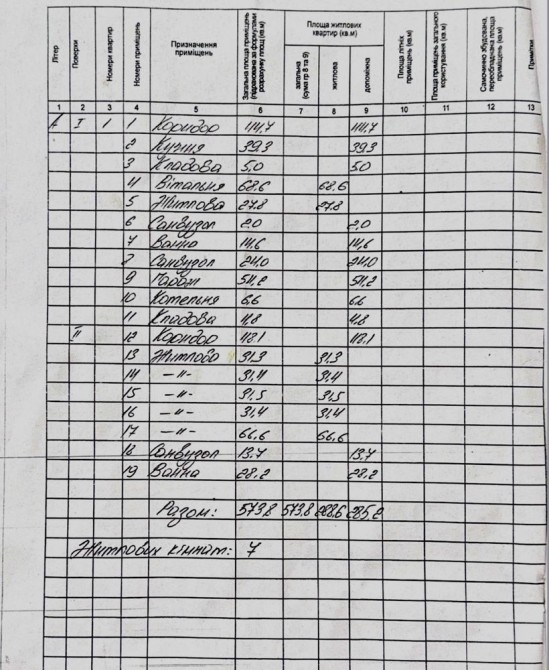 Літер
Поверхи
Номери квартир
Номери приміщень
Призначення приміщень
Загальна площа приміщень (підрахована за формулами розрахунку площ) (кв.м)
Площа житлових квартир (кв.м)
загальна (сума гр 8 та 9)
житлова
допоміжна
Площа літніх приміщень (кв.м)
Площа приміщень загального користування (кв.м)
Самочинно збудована, переобладнана площа приміщень (кв.м)
Примітки
1 2 3 4 5 6 7 8 9 10 11 12 13
А І 1 1 Коридор 44,7 44,7
2 Кухня 39,3 39,3
3 Кладова 5,0 5,0
4 Вітальня 68,6 68,6
5 Житлова 27,8 27,8
6 Санвузол 2,0 2,0
7 Ванна 14,6 14,6
Санвузол 24,0 24,0
9 Гараж 54,2 54,2
10 Котельня 6,6 6,6
11 Кладова 4,8 4,8
ІІ 12 Коридор
13 Житлова 31,3 31,3
14 –"– 31,4 31,4
15 –"– 31,5 31,5
16 –"– 31,4 31,4
17 –"– 66,6 66,6
18 Санвузол
19 Ванна 28,2 28,2
Разом: 573,8 573,8 288,6 285,2
Житлових кімнат: 7